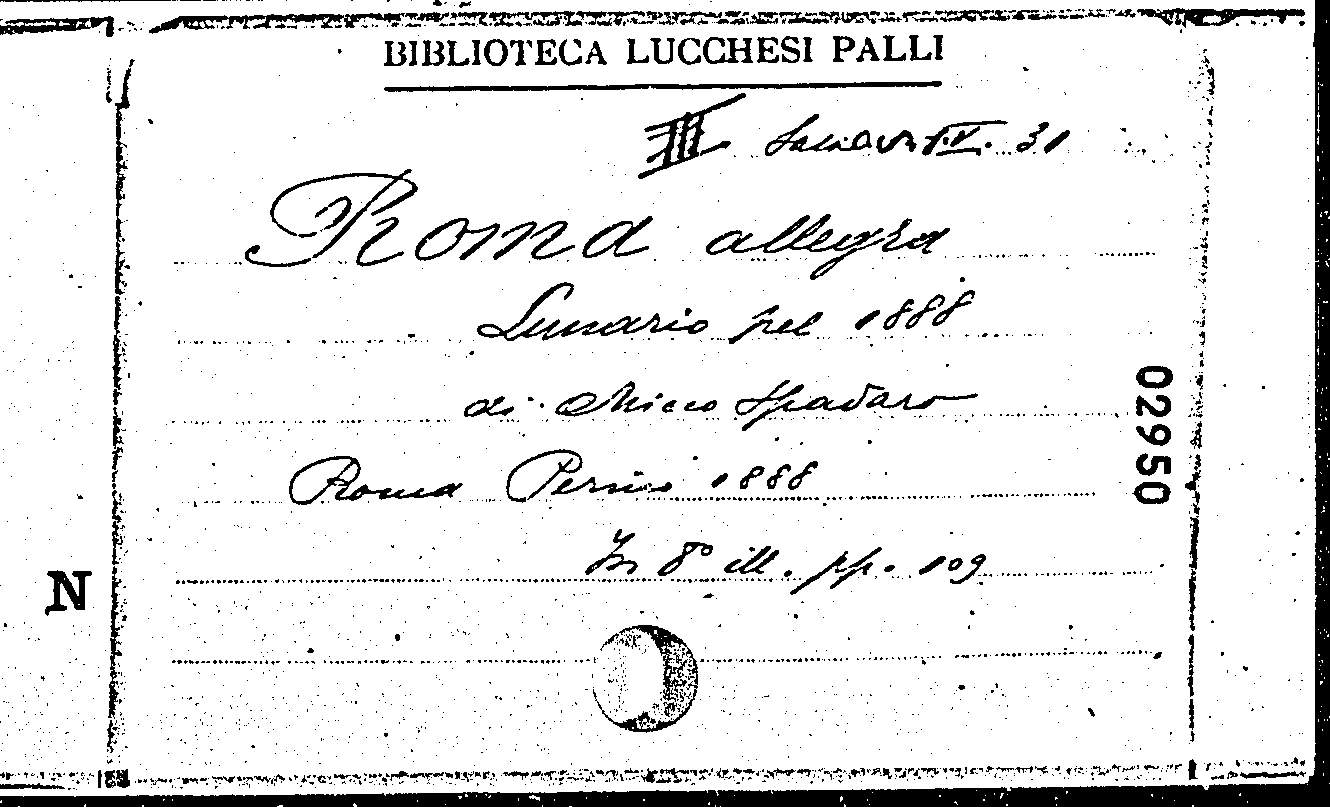 BIBLIOTECA LUCCHESI PALLI
III IV. 31
Roma allegra
Lunario pel 1888
di Micco Spadaro
Roma Perino 1888
In 8° ill. pp. 109
02950
N